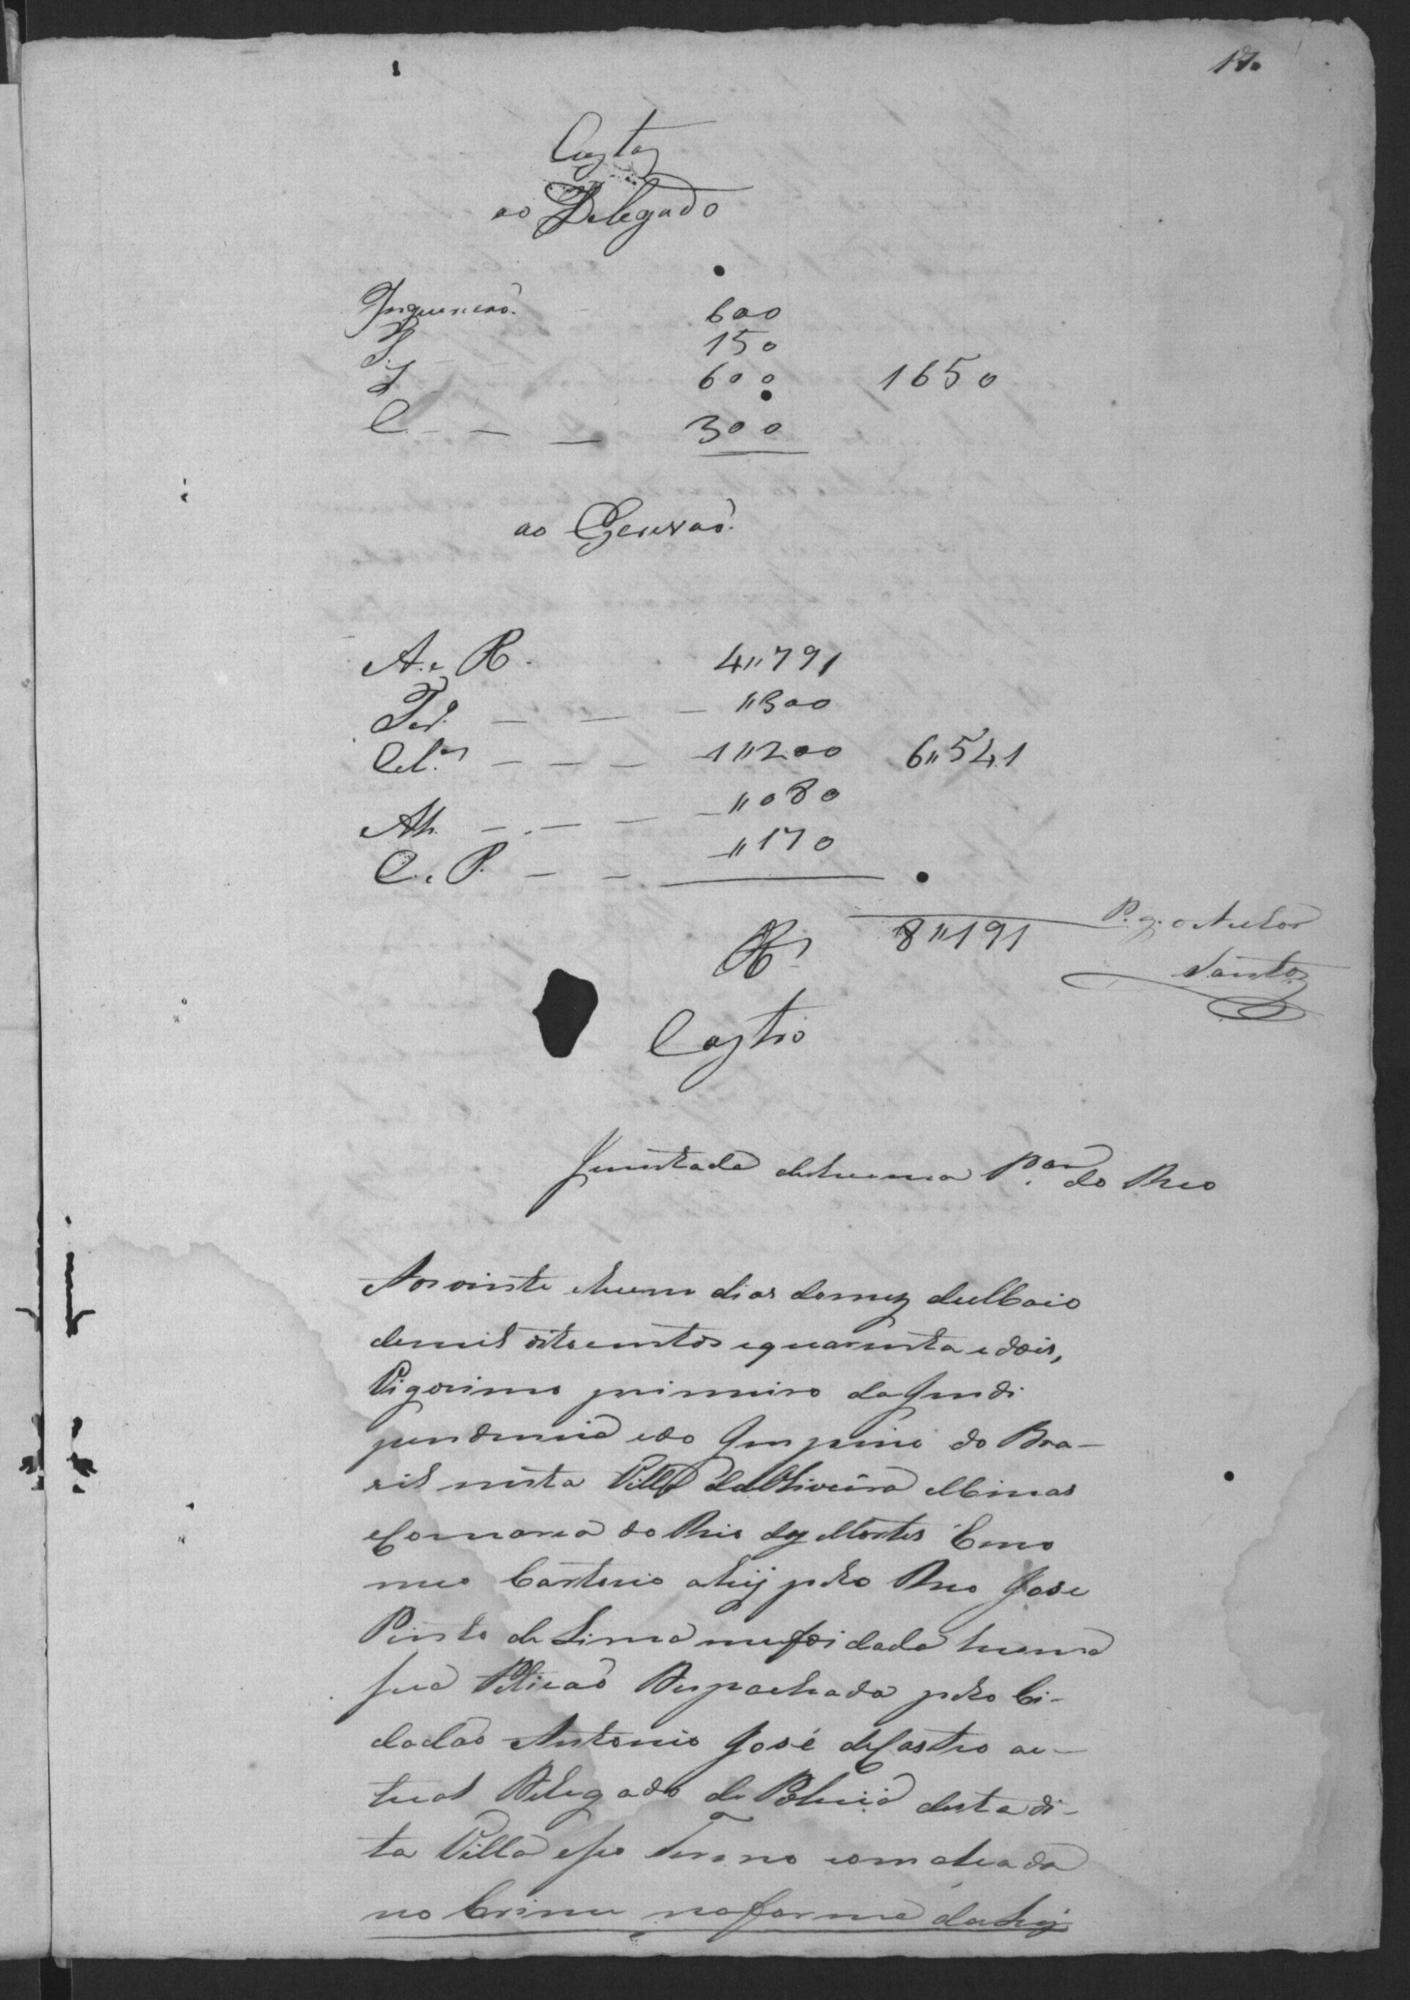 17.
Custas
ao Delegado
Inquericaõ. 600
J. 150
J 600 1650
C. — — 300
ao Escrivaõ.
A. e R. 4"791
Ter. — — — "300
Cel.as — — — 1"200 6"541
Ah. — — — — "080
C. e P. — — "170
Rs 8"191 P. g. o Autor
Santos
Castro
Juntada dehuma P.am do Reo
Aos vinte ehum dias domez deMaio
demil oitocentos equarenta edois,
Vigesimo primeiro da Inde
pendencia edo Imperio do Bra-
sil nesta Villa daOliveira Minas
eComarca do Rio das Mortes Em o
meo Cartorio ahij pelo Reo Jose
Pinto de Lima mefoi dada huma
sua Peticaõ Despachada pelo Ci-
dadaõ Antonio José deCastro ac-
tual Delegado de Policia desta di-
ta Villa eseo Termo com alsada
no Crime naforma daLeij